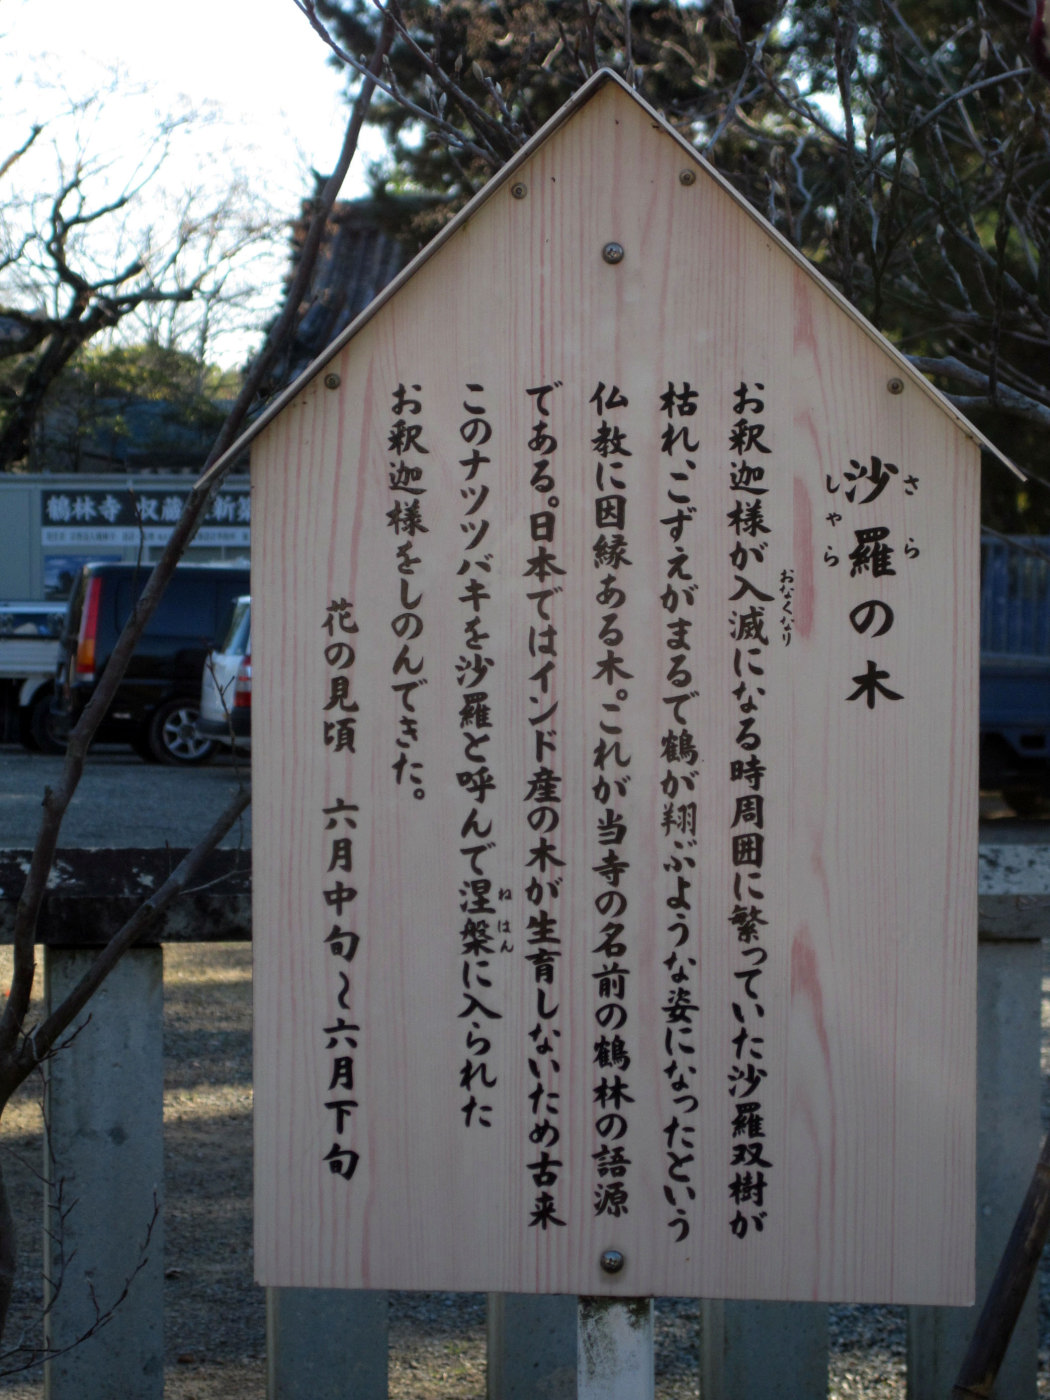 沙羅の木
さら
しゃら
お釈迦様が入滅になる時周囲に繁っていた沙羅双樹が
おなくなり
枯れ、こずえがまるで鶴が翔ぶような姿になったという
仏教に因縁ある木。これが当寺の名前の鶴林の語源
である。日本ではインド産の木が生育しないため古来
このナツツバキを沙羅と呼んで涅槃に入られた
ねはん
お釈迦様をしのんできた。
花の見頃 六月中旬~六月下旬
鶴林寺 収蔵 新